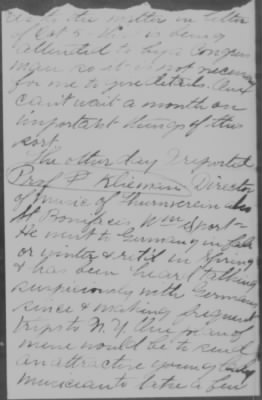 the matter in letter
of Oct 5 - is being
attended to by a Congress
man so it is not necessary
for me to give details. One
can't wait a month on
important things of this
sort.
The other day I reported
Prof P. Klieman Director
of music of Turnverein also
St Boniface's
He went to Germany in fall
or winter & ret'd in Spring
& has been heard talking
suspiciously with Germans
since & making frequent
trips to N.Y. One plan of
mine would be to send
an attractive young lady
musician to take a few